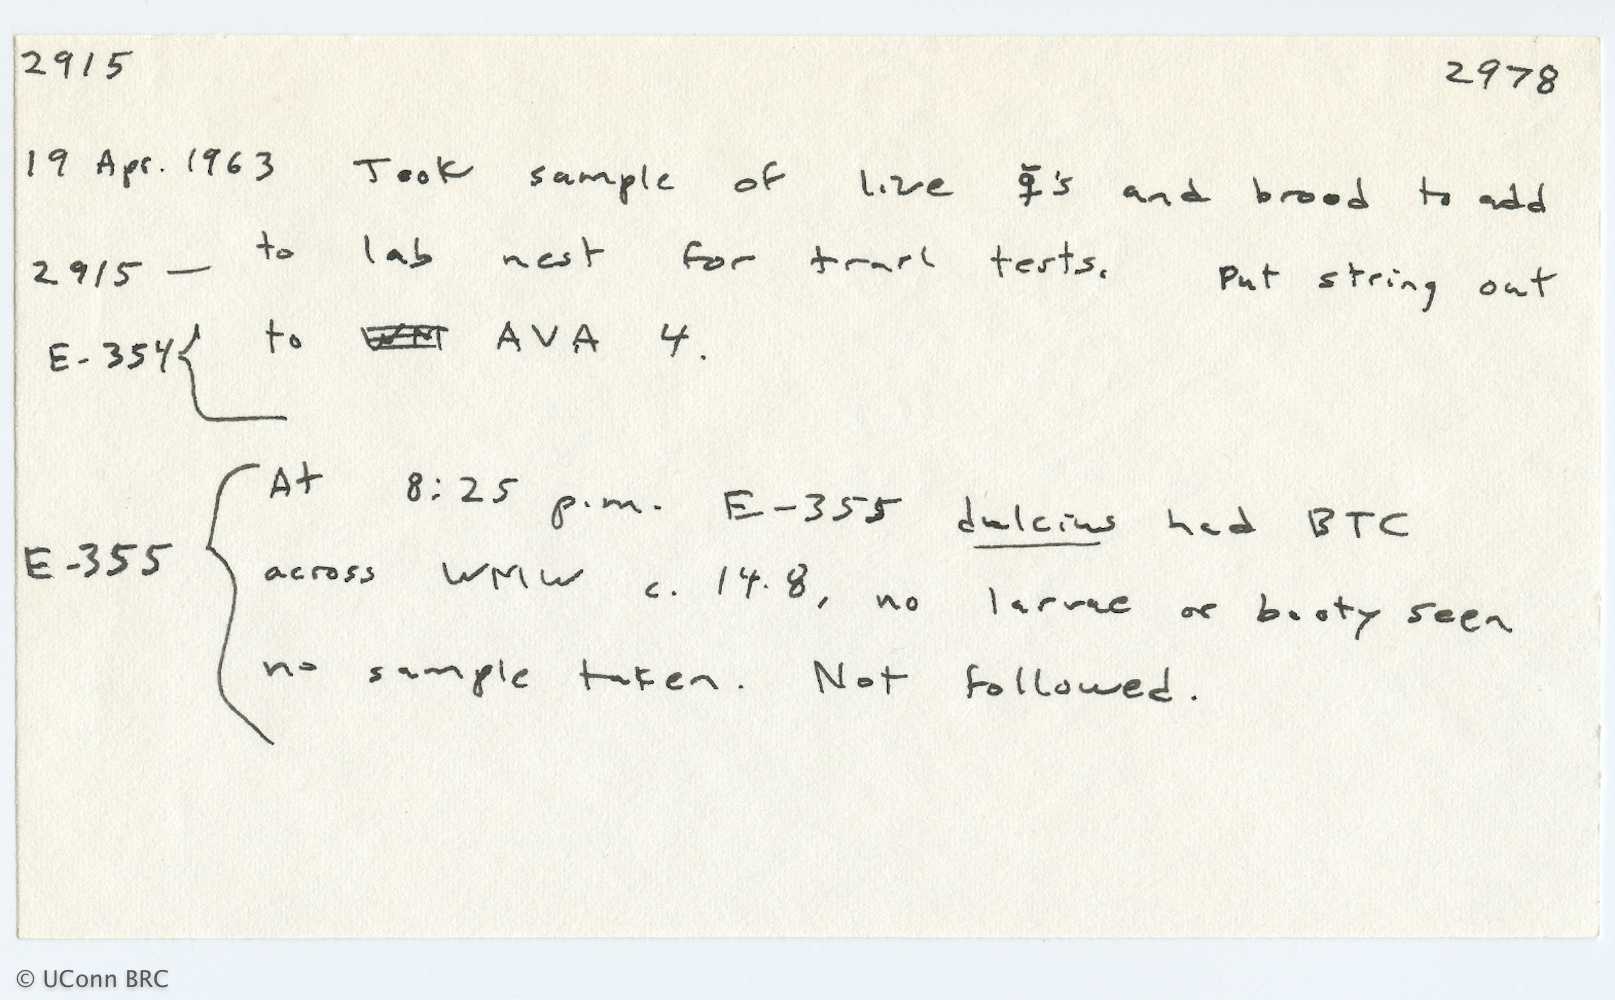 2915 2978
19 Apr. 1963 Took sample of live ☿'s and brood to add
2915 — to lab nest for trail tests. Put string out
E-354 { to AVA 4.
At 8:25 p.m. E-355 dulcius had BTC
E-355 { across WMW c. 14.8, no larvae or booty seen
no sample taken. Not followed.
© UConn BRC